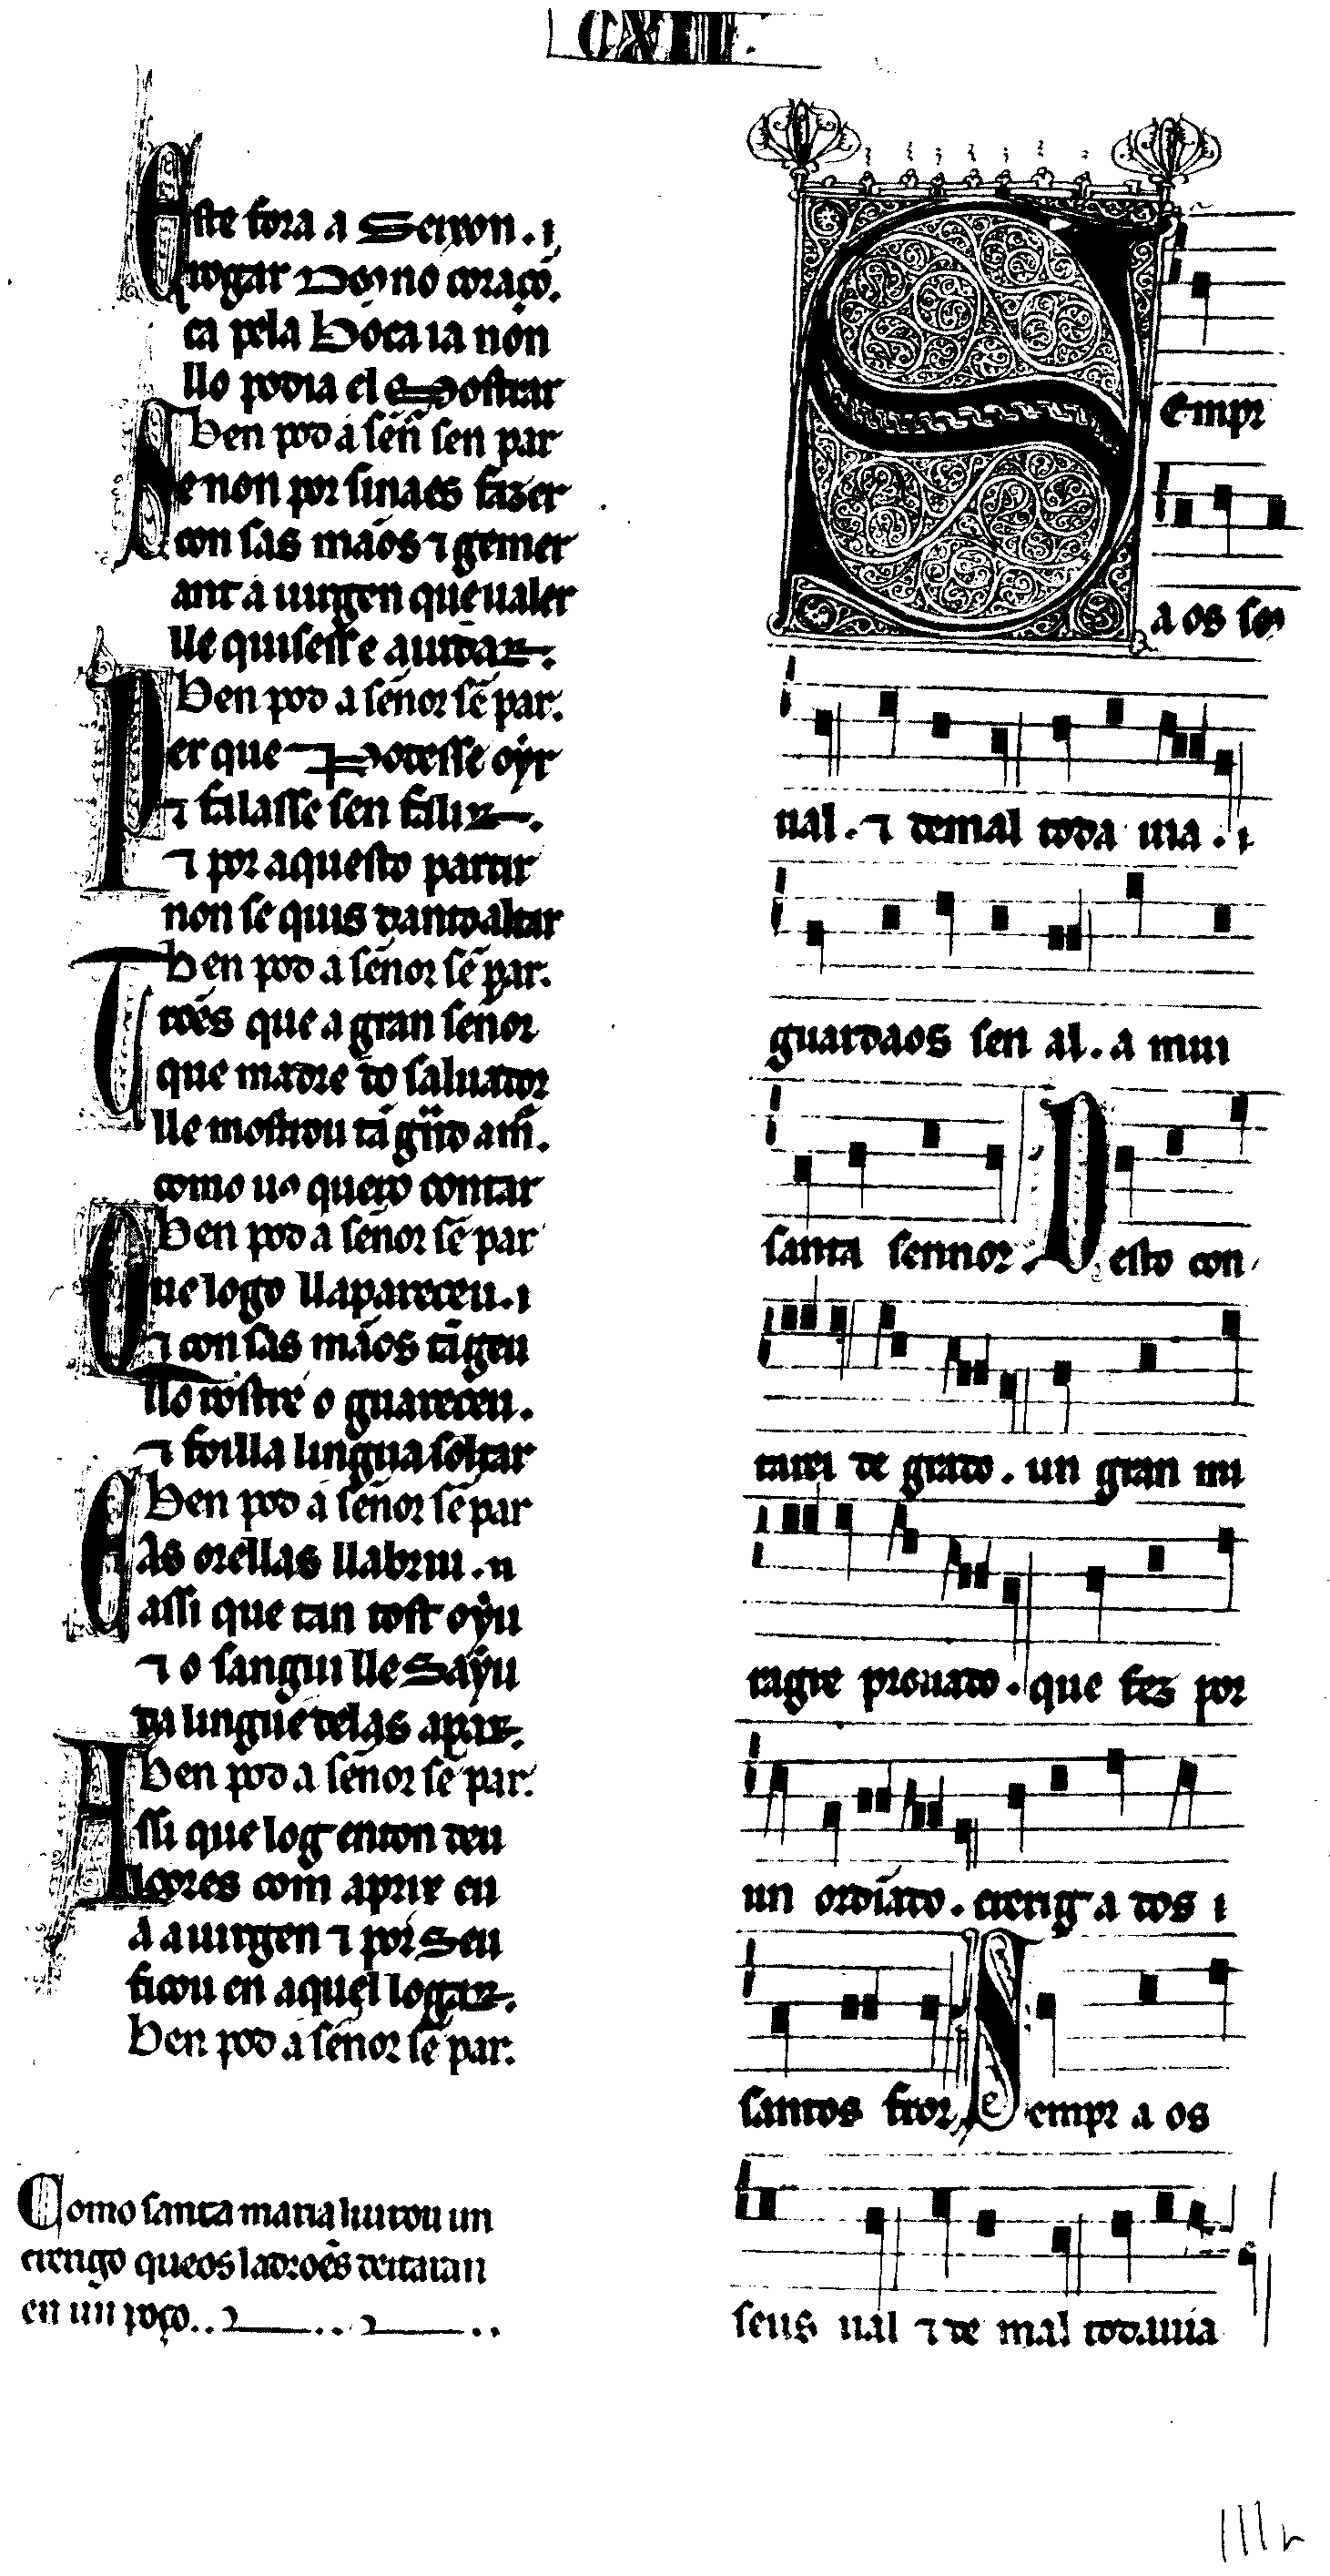 CXII.
Este fora a Seixon. ⁊
rogar Do) no coraçõ.
ca pela Boca ia non
llo podia el e Mostrar
Ben pod a señ sen par
Se non por sinaes fazer
con sas mãos ⁊ gemer
ant a uirgen que ualer
lle quisesse aiudar.
Ben pod a señor sẽ par.
Per que Podesse oyr
⁊ falasse sen falir.
⁊ por aquesto partir
non se quis dant o altar
Ben pod a señor sẽ par.
Toẽs que a gran señor
que madre do saluador
lle mostrou tã
como uo quero contar
Ben pod a señor sẽ par
Que logo llapareceu. ⁊
⁊ con sas mãos tãgeu
llo rostre o guareceu.
⁊ foilla lingua soltar
Ben pod a señor sẽ par
E as orellas llabriu. ⁊
assi que tan tost oyu
⁊ o sangui lle Sayu
da lingu e delas apar.
Ben pod a señor se par.
Assi que log enton deu
loores com aprix eu
a a uirgen ⁊ por Seu
ficou en aquel logar.
Ben pod a señor sẽ par.
Como santa maria liurou un
crerigo que os ladroẽs deitauan
en un poço..
Sempr
a os seus
ual. ⁊ de mal toda uia. ⁊
guardaos sen al. a mui
santa sennor. Desto con
tarei de grado. un gran mi
ragre prouado. que fez por
un ordĩado. crerig a dos ⁊
santos fror Sempr a os
seus ual ⁊ de mal toda uia
111r